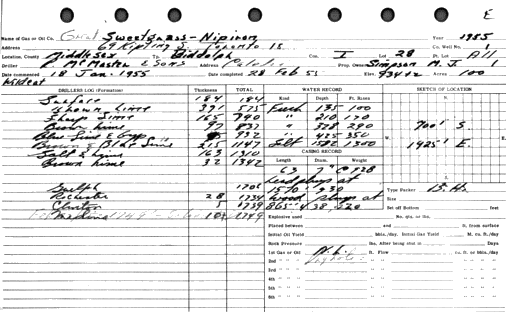 E
Name of Gas or Oil Co. Great Sweetgrass - Nipiron Year 1955
Address 69 Kipling S. Toronto 18 Co. Well No. 1
Location, County Middlesex Tp. Biddulph Con. I Lot 28 Pt. Lot All
Driller McMaster & Sons Address Petrolia Prop. Owner Simpson M. J. 1
Date commenced 18 Jan. 1955 Date completed 28 Feb 55 Elev. Acres 100
Wildcat
DRILLERS LOG (Formation) Thickness TOTAL WATER RECORD SKETCH OF LOCATION
Surface 184 184 Kind Depth Pt. Raises N.
Brown Lime 391 575 Fresh 135 100
Sharp Lime 165 740 " 210 170
Brown Lime 97 837 " 378 290 700' S.
Blue Lime & Gyp 932 " 425 350 W.
Brown & Blue Lime 215 1147 1300 1425' E.
Salt & Lime 163 1310 CASING RECORD
Brown Lime 32 1342 Length Diam. Weight
63 7"
Lead plugs at S.
Guelph 1706 1570 930 Type Packer B.H.
Rochester 28 1734 Wood plugs at Size
Clinton 5 1739 865 438 220 Set off Bottom feet
Medina 10 1749 Explosive used No. qts. or lbs.
Placed between and ft. from surface
Initial Oil Yield bbls./day. Initial Gas Yield M. cu. ft./day
Rock Pressure lbs. After being shut in Days
1st Gas or Oil ft. Flow cu. ft. or bbls./day
2nd " "
3rd " "
4th " "
5th " "
6th " "